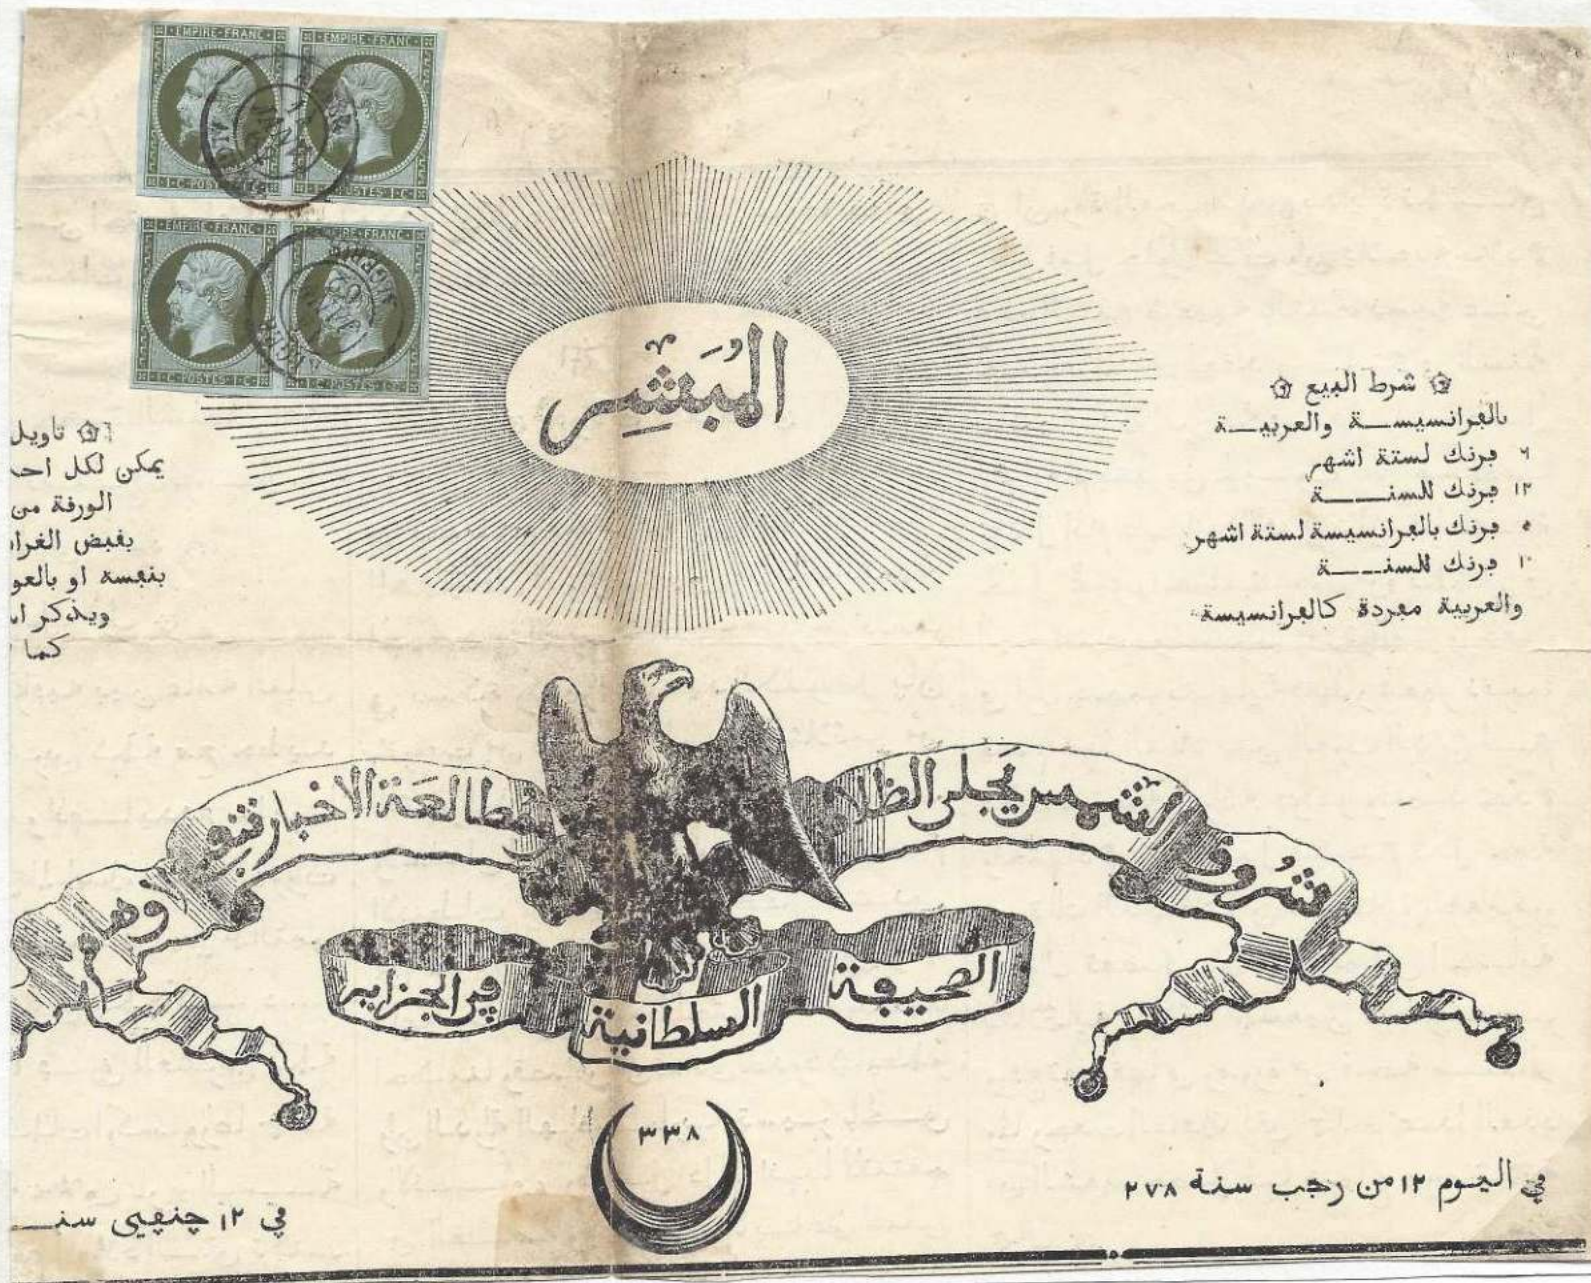 EMPIRE·FRANC· EMPIRE·FRANC·
1·C·POSTES·1·C· 1·C·POSTES·1·C·
EMPIRE·FRANC· EMPIRE·FRANC·
1·C·POSTES·1·C· 1·C·POSTES·1·C·
المُبَشِّر
شرط البيع
بالڢرانسيسـة والعربيـة
٦ ڢرنك لستة اشهر
١٢ ڢرنك للسنـة
٥ ڢرنك بالڢرانسيسة لستة اشهر
١٠ ڢرنك للسنـة
والعربية مڢردة كالڢرانسيسة
تاويل
يمكن لكل احد
الورفة من
بفبض الغرا
بنڢسه او بالعو
ويذكر ا
كما
شروق الشمس يجلى الظلا
مطالعة الاخبار تنور
وها
الصحيڢة السلطانية ڢي الجزاير
٣٣٨
ڢي اليـوم ١٢ من رجب سنة ٢٧٨
ڢي ١٢ جنڢيى سنـ